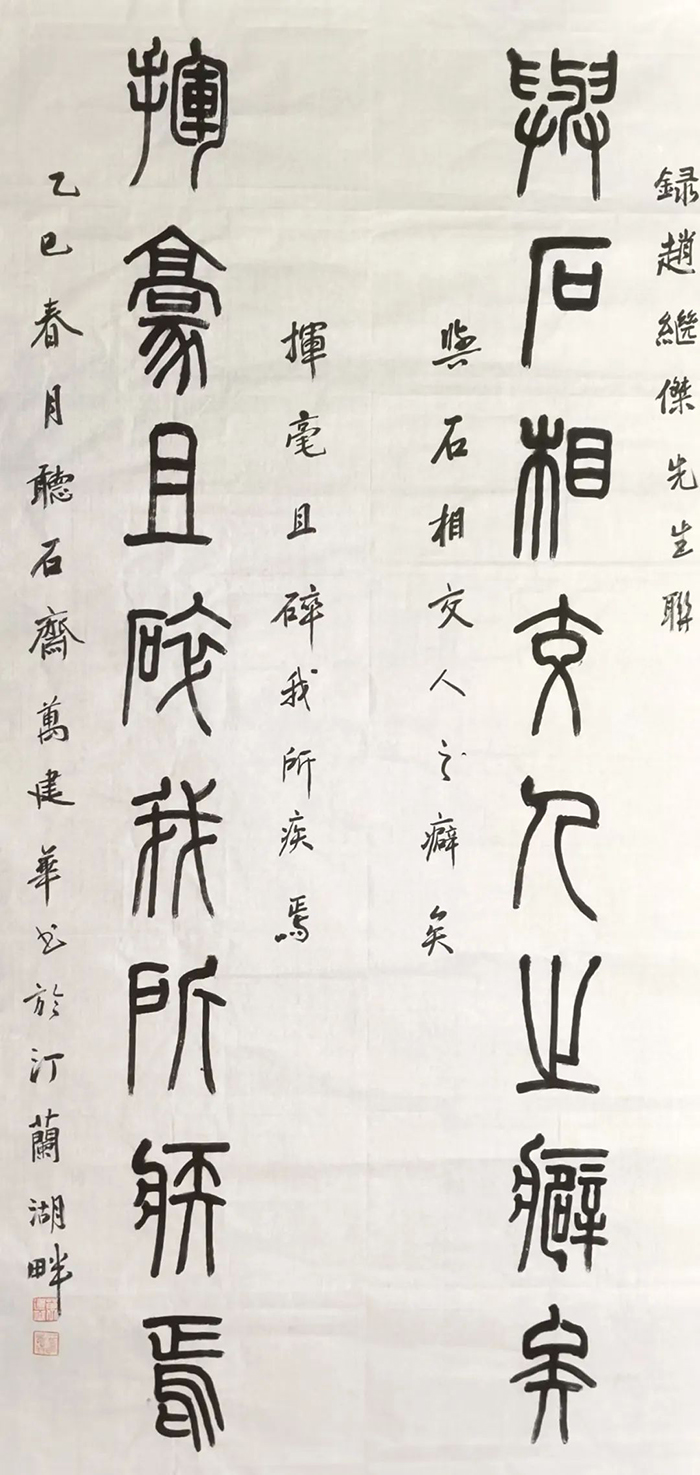 録趙繼傑先生聯
與石相交人之癖矣
與石相交人之癖矣
揮毫且碎我所疾焉
揮豪且碎我所疾焉
乙巳春月聽石齋萬建華书於汀蘭湖畔